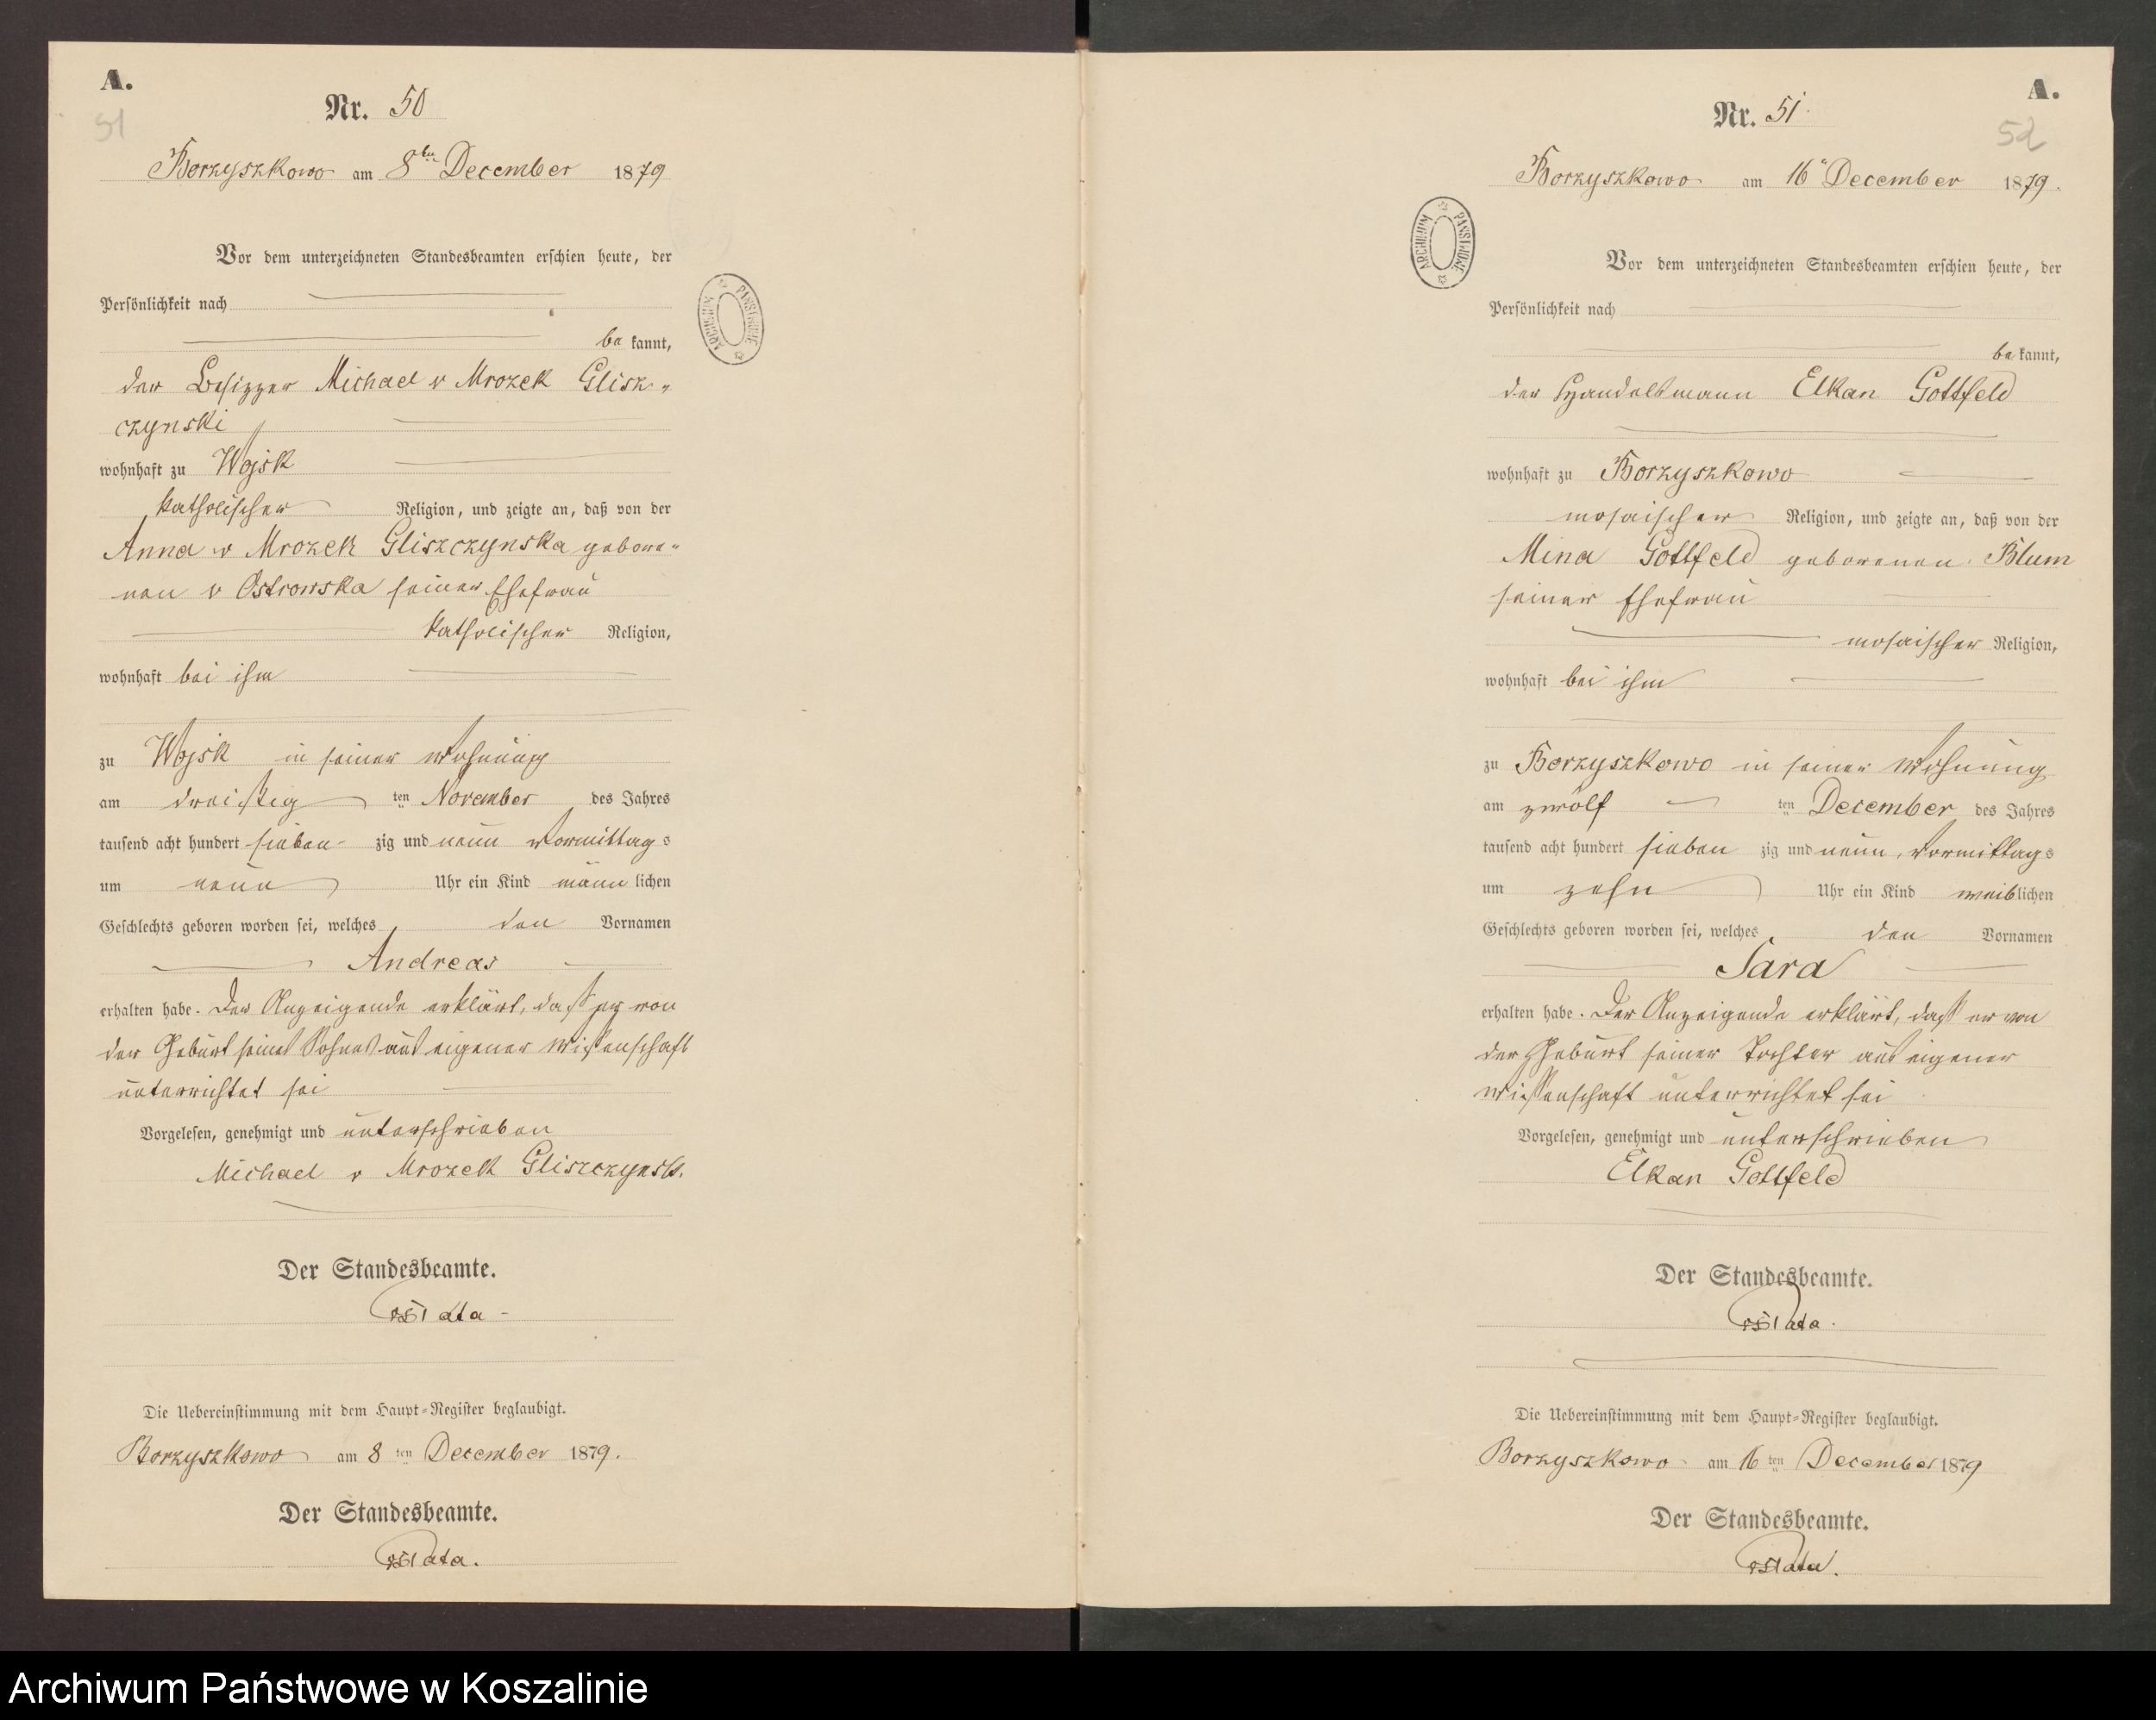 A.
51
Nr. 50
Borzyszkowo am 8ten December 1879
Vor dem unterzeichneten Standesbeamten erschien heute, der
Persönlichkeit nach
be kannt,
der Besitzer Michael v Mrozek Glisz-
czynski
wohnhaft zu Wojsk
katholischer Religion, und zeigte an, daß von der
Anna v Mrozek Gliszczynska gebore-
nen v Ostrowska seiner Ehefrau
katholischer Religion,
wohnhaft bei ihm
zu Wojsk in seiner Wohnung
am dreißig ten November des Jahres
tausend acht hundert sieben zig und neun Vormittags
um neun Uhr ein Kind männ lichen
Geschlechts geboren worden sei, welches den Vornamen
Andreas
erhalten habe. Der Anzeigende erklärt, daß er von
der Geburt seines Sohnes aus eigener Wissenschaft
unterrichtet sei
Vorgelesen, genehmigt und unterschrieben
Michael v Mrozek Gliszczynski.
Der Standesbeamte.
Die Uebereinstimmung mit dem Haupt-Register beglaubigt.
Borzyszkowo am 8 ten December 1879.
Der Standesbeamte.
ARCHIWUM PAŃSTWOWE
A.
52
Nr. 51
Borzyszkowo am 16 December 1879.
Vor dem unterzeichneten Standesbeamten erschien heute, der
Persönlichkeit nach
be kannt,
der Handelsmann Elkan Gottfeld
wohnhaft zu Borzyszkowo
mosaischer Religion, und zeigte an, daß von der
Mina Gottfeld geborenen Blum
seiner Ehefrau
mosaischer Religion,
wohnhaft bei ihm
zu Borzyszkowo in seiner Wohnung
am zwölf ten December des Jahres
tausend acht hundert sieben zig und neun, Vormittags
um zehn Uhr ein Kind weiblichen
Geschlechts geboren worden sei, welches den Vornamen
Sara
erhalten habe. Der Anzeigende erklärt, daß er von
der Geburt seiner Tochter aus eigener
Wissenschaft unterrichtet sei
Vorgelesen, genehmigt und unterschrieben
Elkan Gottfeld
Der Standesbeamte.
Die Uebereinstimmung mit dem Haupt-Register beglaubigt.
Borzyszkowo am 16 ten December 1879
Der Standesbeamte.
ARCHIWUM PAŃSTWOWE
Archiwum Państwowe w Koszalinie